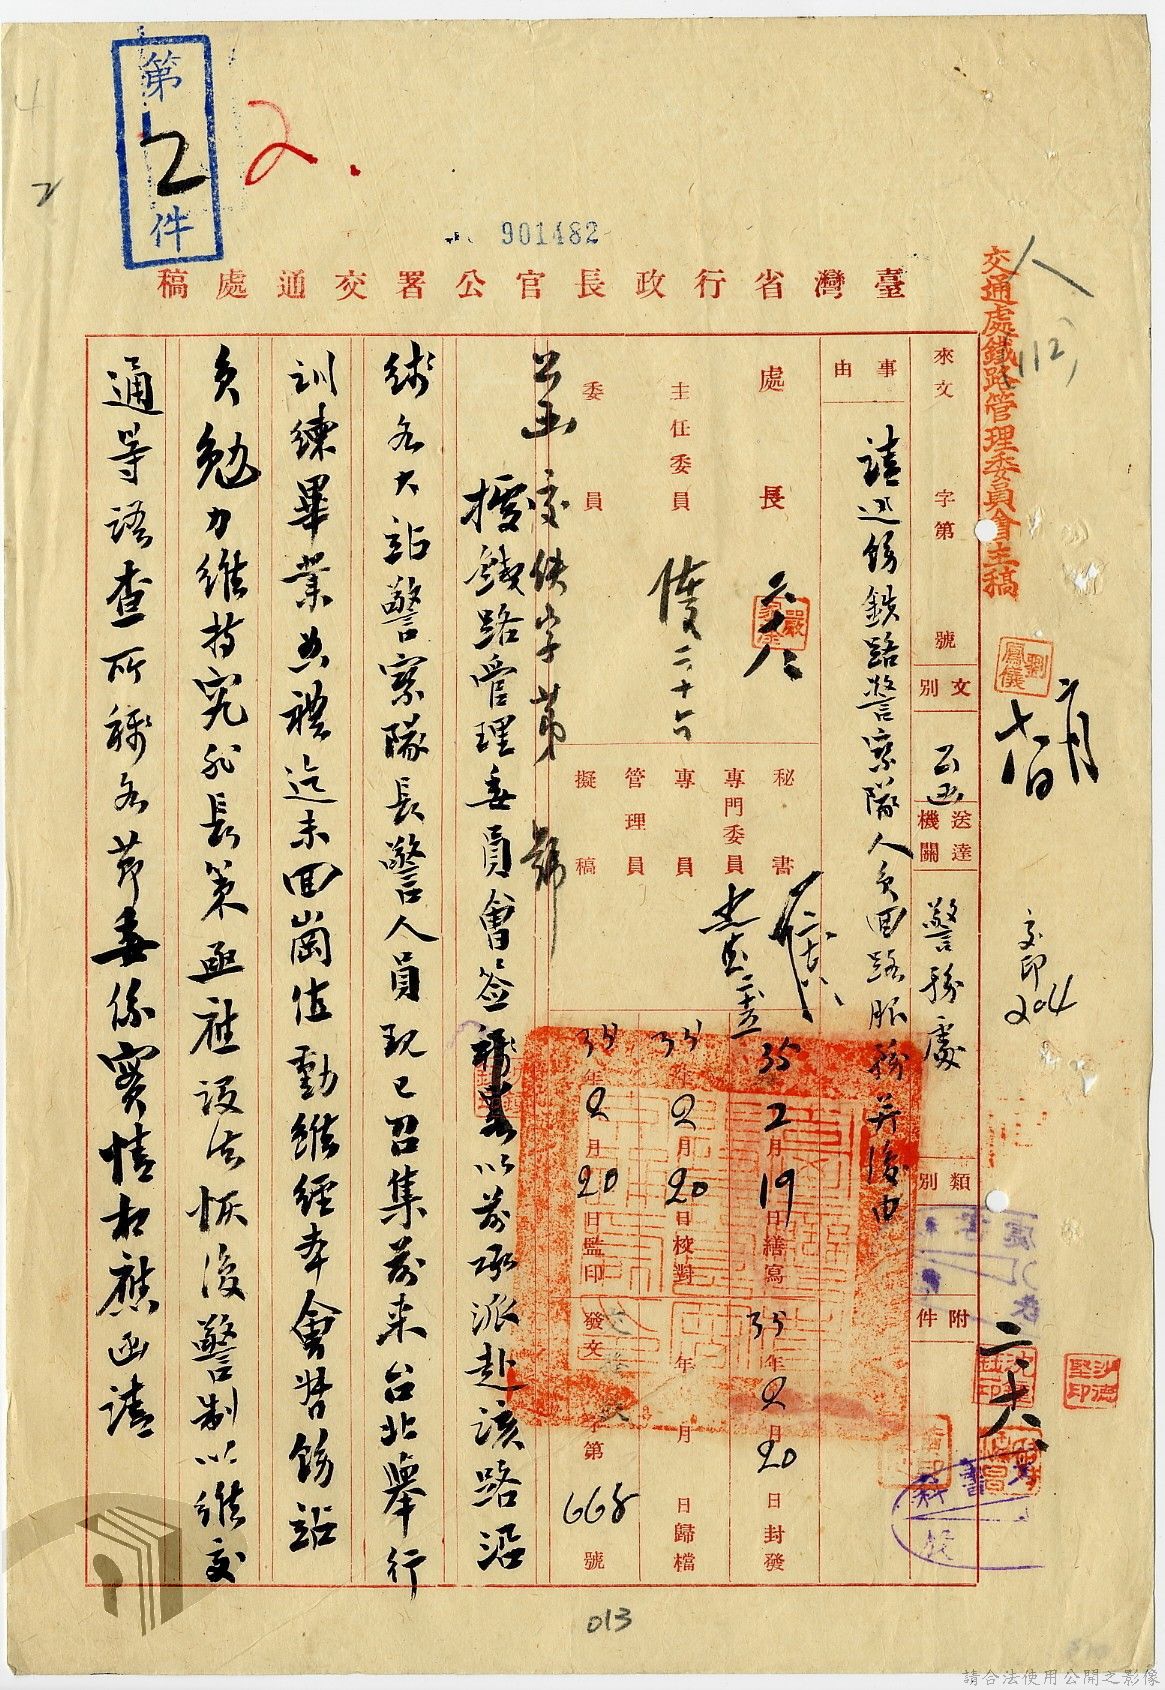 第
2
件
2.
901482
臺灣省行政長官公署交通處稿
交通處鐵路管理委員會主稿
來文 字第 號
文別 公函
送達機關 警務處
類別
附件
事由
請迅飭鉄路警察隊人員回路服務并復由
處長
主任委員
委員
秘書
專門委員
專員
管理員
擬稿
35年2月19日繕寫
35年2月20日封發
35年2月20日校對
年 月 日歸檔
35年2月20日監印
發文 字第 號
公函 交鉄字第 號
據鐵路管理委員會簽稱以前承派赴該路沿
線各大站警察隊長警人員現已召集前来台北舉行
訓練畢業典禮迄未回崗值勤雖經本會督飭站
員勉力維持究非長策亟應設法恢復警制以維交
通等語查所稱各節委係實情相應函請
二月
十八日
交印
204
013
請合法使用公開之影像